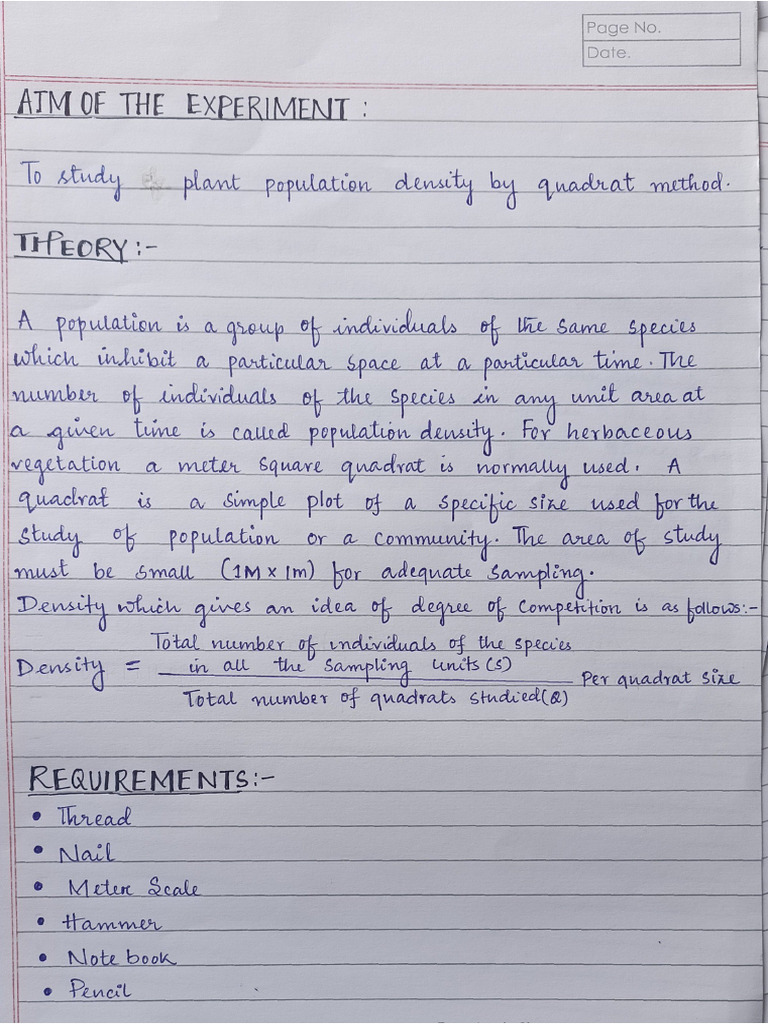 Page No.
Date.
AIM OF THE EXPERIMENT :
To study plant population density by quadrat method.
THEORY :-
A population is a group of individuals of the same species
which inhibit a particular space at a particular time. The
number of individuals of the species in any unit area at
a given time is called population density. For herbaceous
vegetation a meter square quadrat is normally used. A
quadrat is a simple plot of a specific size used for the
study of population or a community. The area of study
must be small (1M × 1m) for adequate sampling.
Density which gives an idea of degree of competition is as follows:-
Total number of individuals of the species
Density = in all the sampling units (S) Per quadrat size
Total number of quadrats studied (Q)
REQUIREMENTS:-
• Thread
• Nail
• Meter Scale
• Hammer
• Note book
• Pencil